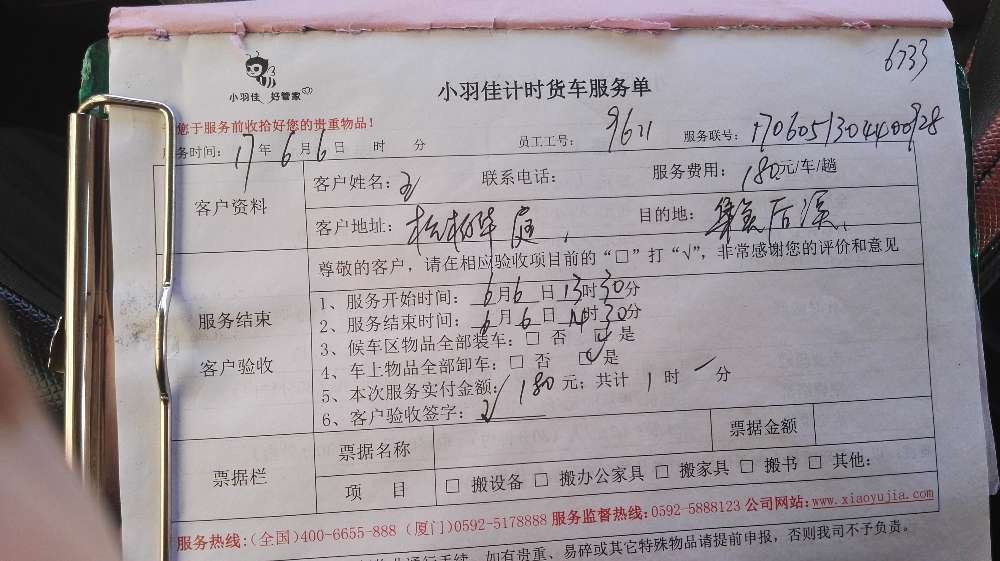 6733
小羽佳 好管家
小羽佳计时货车服务单
您于服务前收拾好您的贵重物品!
务时间: 17年6月6日 时 分 员工工号: 9671 服务联号:
客户资料
客户姓名: 联系电话: 服务费用: 180元/车/趟
客户地址: 松柏华庭, 目的地: 集美后溪,
服务结束
客户验收
尊敬的客户，请在相应验收项目前的“□”打“√”，非常感谢您的评价和意见
1、服务开始时间: 6月6日13时30分
2、服务结束时间: 6月6日14时30分
3、候车区物品全部装车: □ 否 ☑ 是
4、车上物品全部卸车: □ 否 ☑ 是
5、本次服务实付金额: 180元; 共计 1 时 一 分
6、客户验收签字:
票据栏
票据名称 票据金额
项 目 □ 搬设备 □ 搬办公家具 □ 搬家具 □ 搬书 □ 其他:
服务热线:(全国)400-6655-888 (厦门)0592-5178888 服务监督热线:0592-5888123 公司网站:www.xiaoyujia.com
通行手续，如有贵重、易碎或其它特殊物品请提前申报，否则我司不予负责。